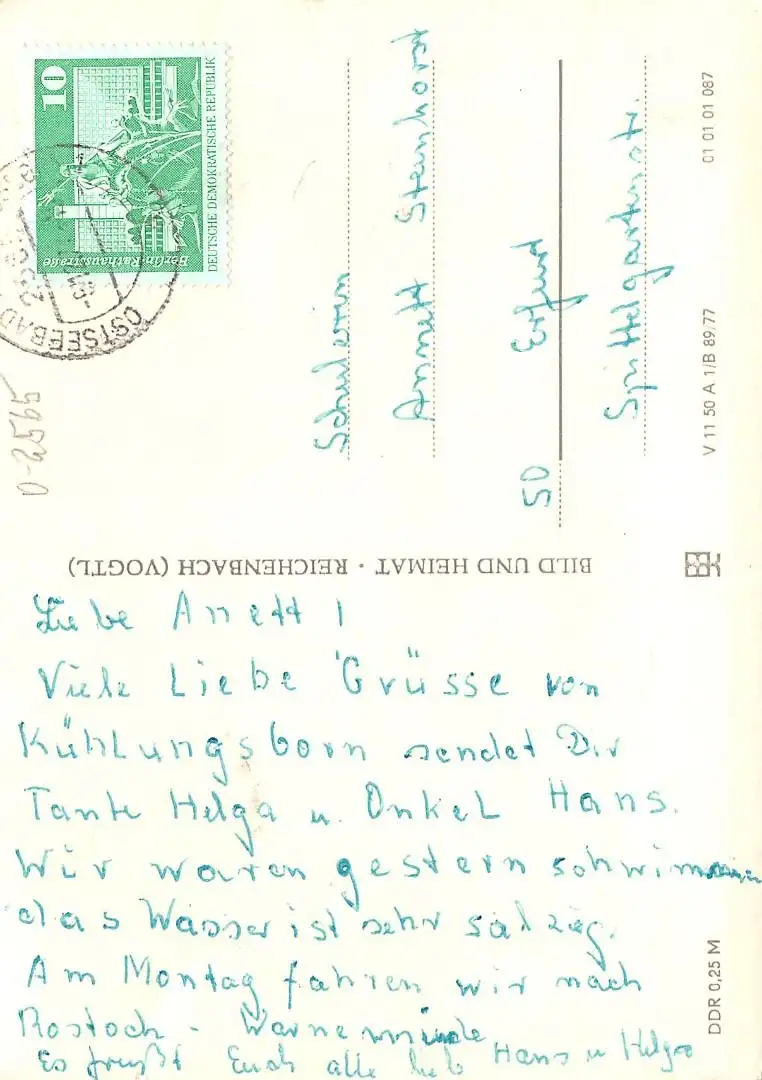 10
DEUTSCHE DEMOKRATISCHE REPUBLIK
Berlin · Rathausstraße
OSTSEEBAD
0-2565
Schülerin
Annett Steinhorst
50 Erfurt
Spittelgartenstr.
01 01 01 087
V 11 50 A 1/B 89/77
BILD UND HEIMAT · REICHENBACH (VOGTL)
DDR 0,25 M
Liebe Anett!
Viele Liebe Grüsse von
Kühlungsborn sendet Dir
Tante Helga u. Onkel Hans.
Wir waren gestern schwimmen
das Wasser ist sehr salzig.
Am Montag fahren wir nach
Rostock - Warnemünde
Es grüßt Euch alle lieb Hans u Helga